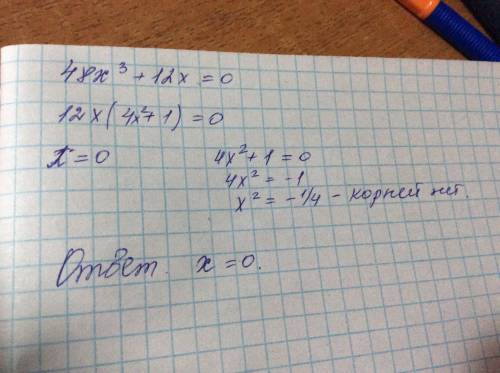 48x³ + 12x = 0
12x(4x² + 1) = 0
x = 0
4x² + 1 = 0
4x² = -1
x² = -1/4 - корней нет.
Ответ. x = 0.